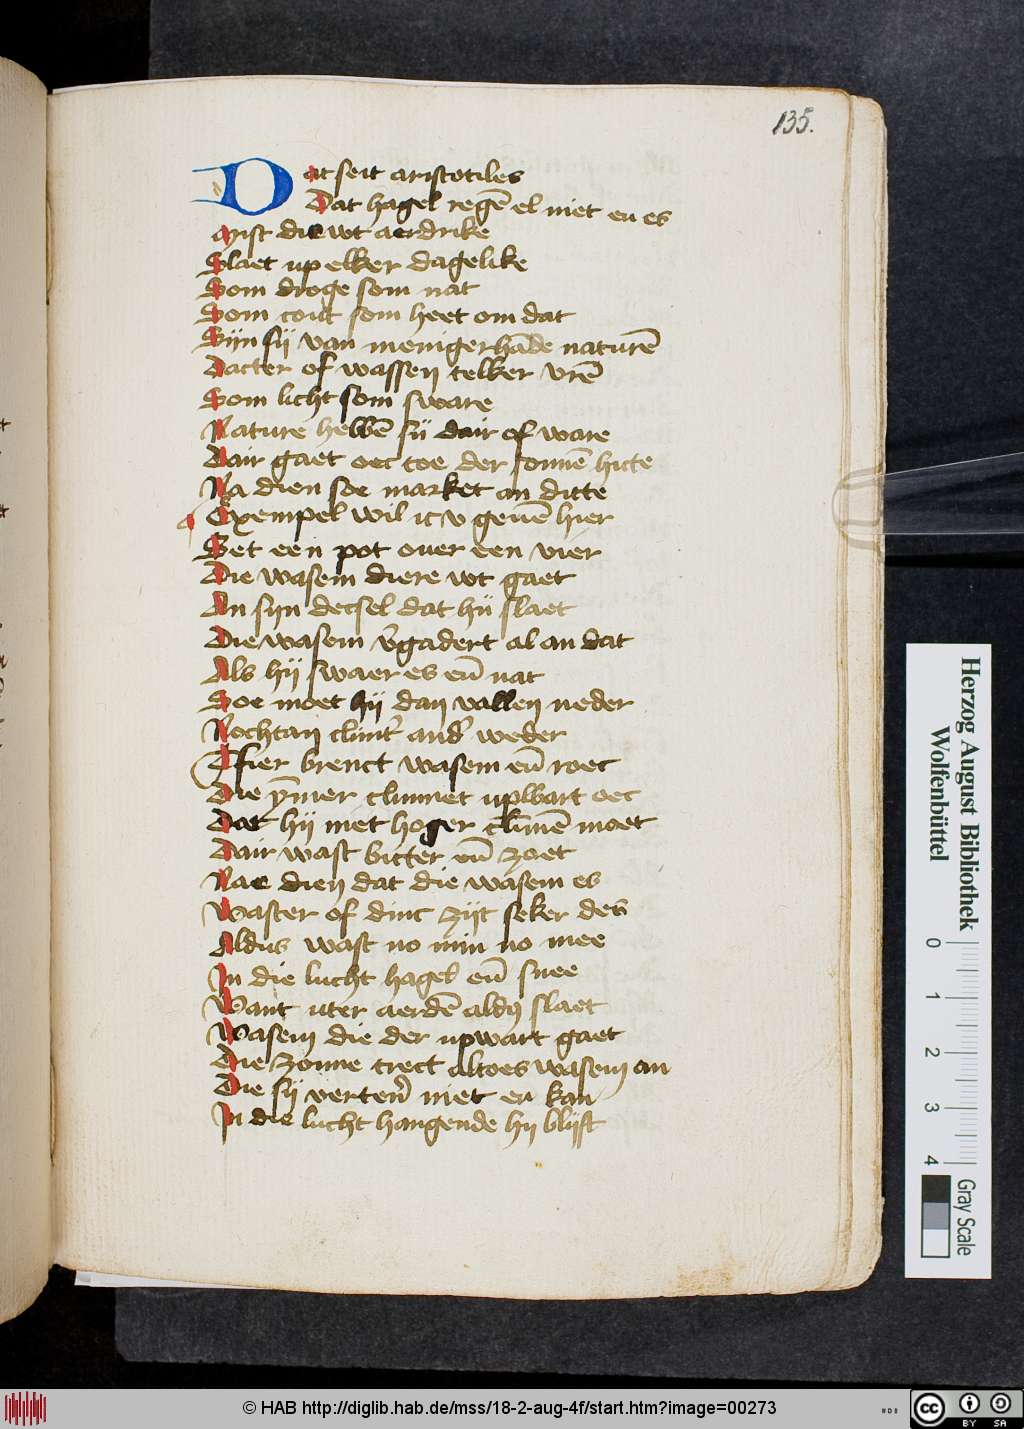 135.
Dat seit aristotiles
Dat hagel regē el niet en es
Mist die wt aerdrike
Slaet up elker dagelike
Som droge som nat
Som cout som heet om dat
Sijn sij van menigerhāde naturē
Dacter of wassen telker vrē
Som licht som sware
Nature hebbē sij dair of ware
Dair gaet oec toe der sonnē hitte
Na dien soe market an ditte
Exempel wil ic v geuē hier
Set een pot ouer een vier
Die wasem diere wt gaet
An sijn decsel dat hij slaet
Die wasem v̄gadert al an dat
Als hij swaer es eñ nat
Soe moet hij dan vallen neder
Nochtan climt' and' weder
Tfier brenct wasem eñ roec
Die ȳmer climmet upwart oec
Dat hij niet hoger climē moet
Dair wast bitter eñ zoet
Nae dien dat die wasem es
Waster of dinc zijt seker des
Aldus wast no min no mee
In die lucht hagel eñ snee
Want uter aerdē aldꝯ slaet
Wasem die der upwart gaet
Die zonne trect altoes wasem an
Die sij verterē niet en kan
In die lucht hangende hij blijft
Herzog August Bibliothek
Wolfenbüttel
0 1 2 3 4
Gray Scale
© HAB http://diglib.hab.de/mss/18-2-aug-4f/start.htm?image=00273
cc BY SA